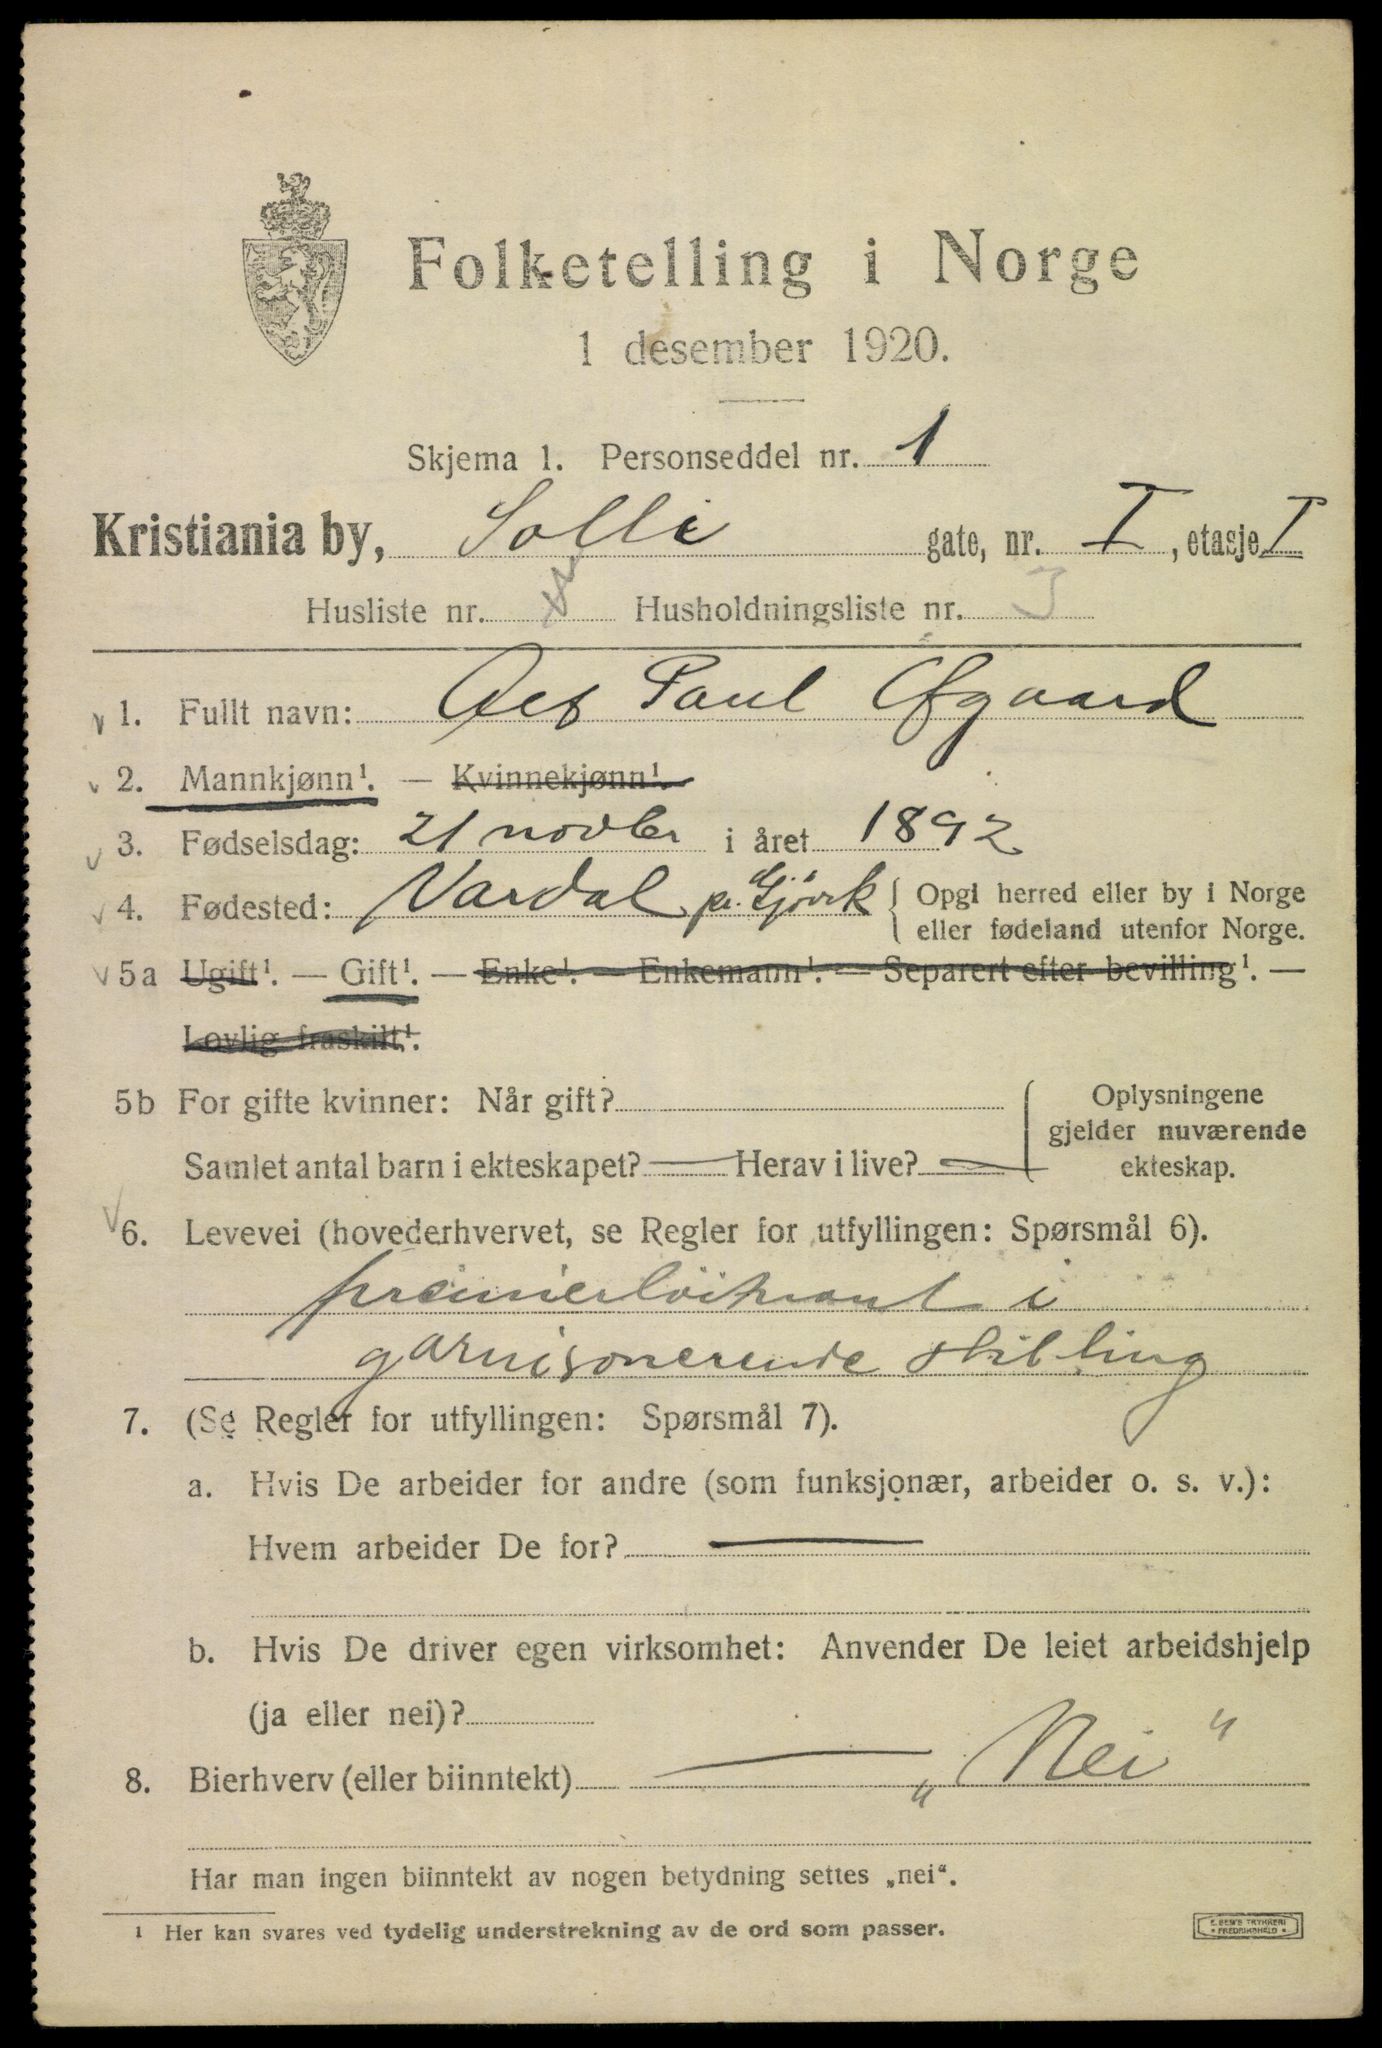 Folketelling i Norge
1 desember 1920.
Skjema 1. Personseddel nr. 1
Kristiania by, Solli gate, nr. I, etasje I
Husliste nr. Husholdningsliste nr. 3
1. Fullt navn: Paul
2. Mannkjønn¹. — Kvinnekjønn¹.
3. Fødselsdag: 21 novbr i året 1892
4. Fødested: Vardal pr. Gjøvik { Opgi herred eller by i Norge
eller fødeland utenfor Norge.
5a Ugift¹. — Gift¹. — Enke¹. — Enkemann¹. — Separert efter bevilling¹. —
Lovlig fraskilt¹.
5b For gifte kvinner: Når gift?
Samlet antal barn i ekteskapet? — Herav i live? —
Oplysningene
gjelder nuværende
ekteskap.
6. Levevei (hovederhvervet, se Regler for utfyllingen: Spørsmål 6).
premierløitnant i
garnisonerende stilling
7. (Se Regler for utfyllingen: Spørsmål 7).
a. Hvis De arbeider for andre (som funksjonær, arbeider o. s. v.):
Hvem arbeider De for? —
b. Hvis De driver egen virksomhet: Anvender De leiet arbeidshjelp
(ja eller nei)?
8. Bierhverv (eller biinntekt) — „Nei"
Har man ingen biinntekt av nogen betydning settes „nei“.
1 Her kan svares ved tydelig understrekning av de ord som passer.